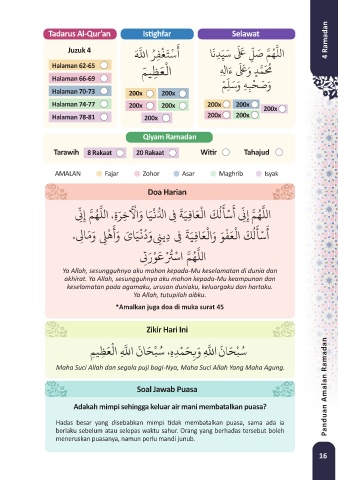 Tadarus Al-Qur'an
Istighfar
Selawat
Juzuk 4
Halaman 62-65
Halaman 66-69
Halaman 70-73
Halaman 74-77
Halaman 78-81
أَسْتَغْفِرُ اللَّهَ
الْعَظِيمَ
200x 200x
200x 200x
200x
اللَّهُمَّ صَلِّ عَلَى سَيِّدِنَا
مُحَمَّدٍ وَعَلَى آلِهِ
وَصَحْبِهِ وَسَلِّمْ
200x 200x
200x
200x 200x
4 Ramadan
Qiyam Ramadan
Tarawih 8 Rakaat 20 Rakaat Witir Tahajud
AMALAN Fajar Zohor Asar Maghrib Isyak
Doa Harian
اللَّهُمَّ إِنِّي أَسْأَلُكَ الْعَافِيَةَ فِي الدُّنْيَا وَالْآخِرَةِ، اللَّهُمَّ إِنِّي
أَسْأَلُكَ الْعَفْوَ وَالْعَافِيَةَ فِي دِينِي وَدُنْيَايَ وَأَهْلِي وَمَالِي،
اللَّهُمَّ اسْتُرْ عَوْرَتِي
Ya Allah, sesungguhnya aku mohon kepada-Mu keselamatan di dunia dan
akhirat. Ya Allah, sesungguhnya aku mohon kepada-Mu keampunan dan
keselamatan pada agamaku, urusan duniaku, keluargaku dan hartaku.
Ya Allah, tutupilah aibku.
*Amalkan juga doa di muka surat 45
Zikir Hari Ini
سُبْحَانَ اللَّهِ وَبِحَمْدِهِ، سُبْحَانَ اللَّهِ الْعَظِيمِ
Maha Suci Allah dan segala puji bagi-Nya, Maha Suci Allah Yang Maha Agung.
Soal Jawab Puasa
Adakah mimpi sehingga keluar air mani membatalkan puasa?
Hadas besar yang disebabkan mimpi tidak membatalkan puasa, sama ada ia
berlaku sebelum atau selepas waktu sahur. Orang yang berhadas tersebut boleh
meneruskan puasanya, namun perlu mandi junub.
Panduan Amalan Ramadan
16